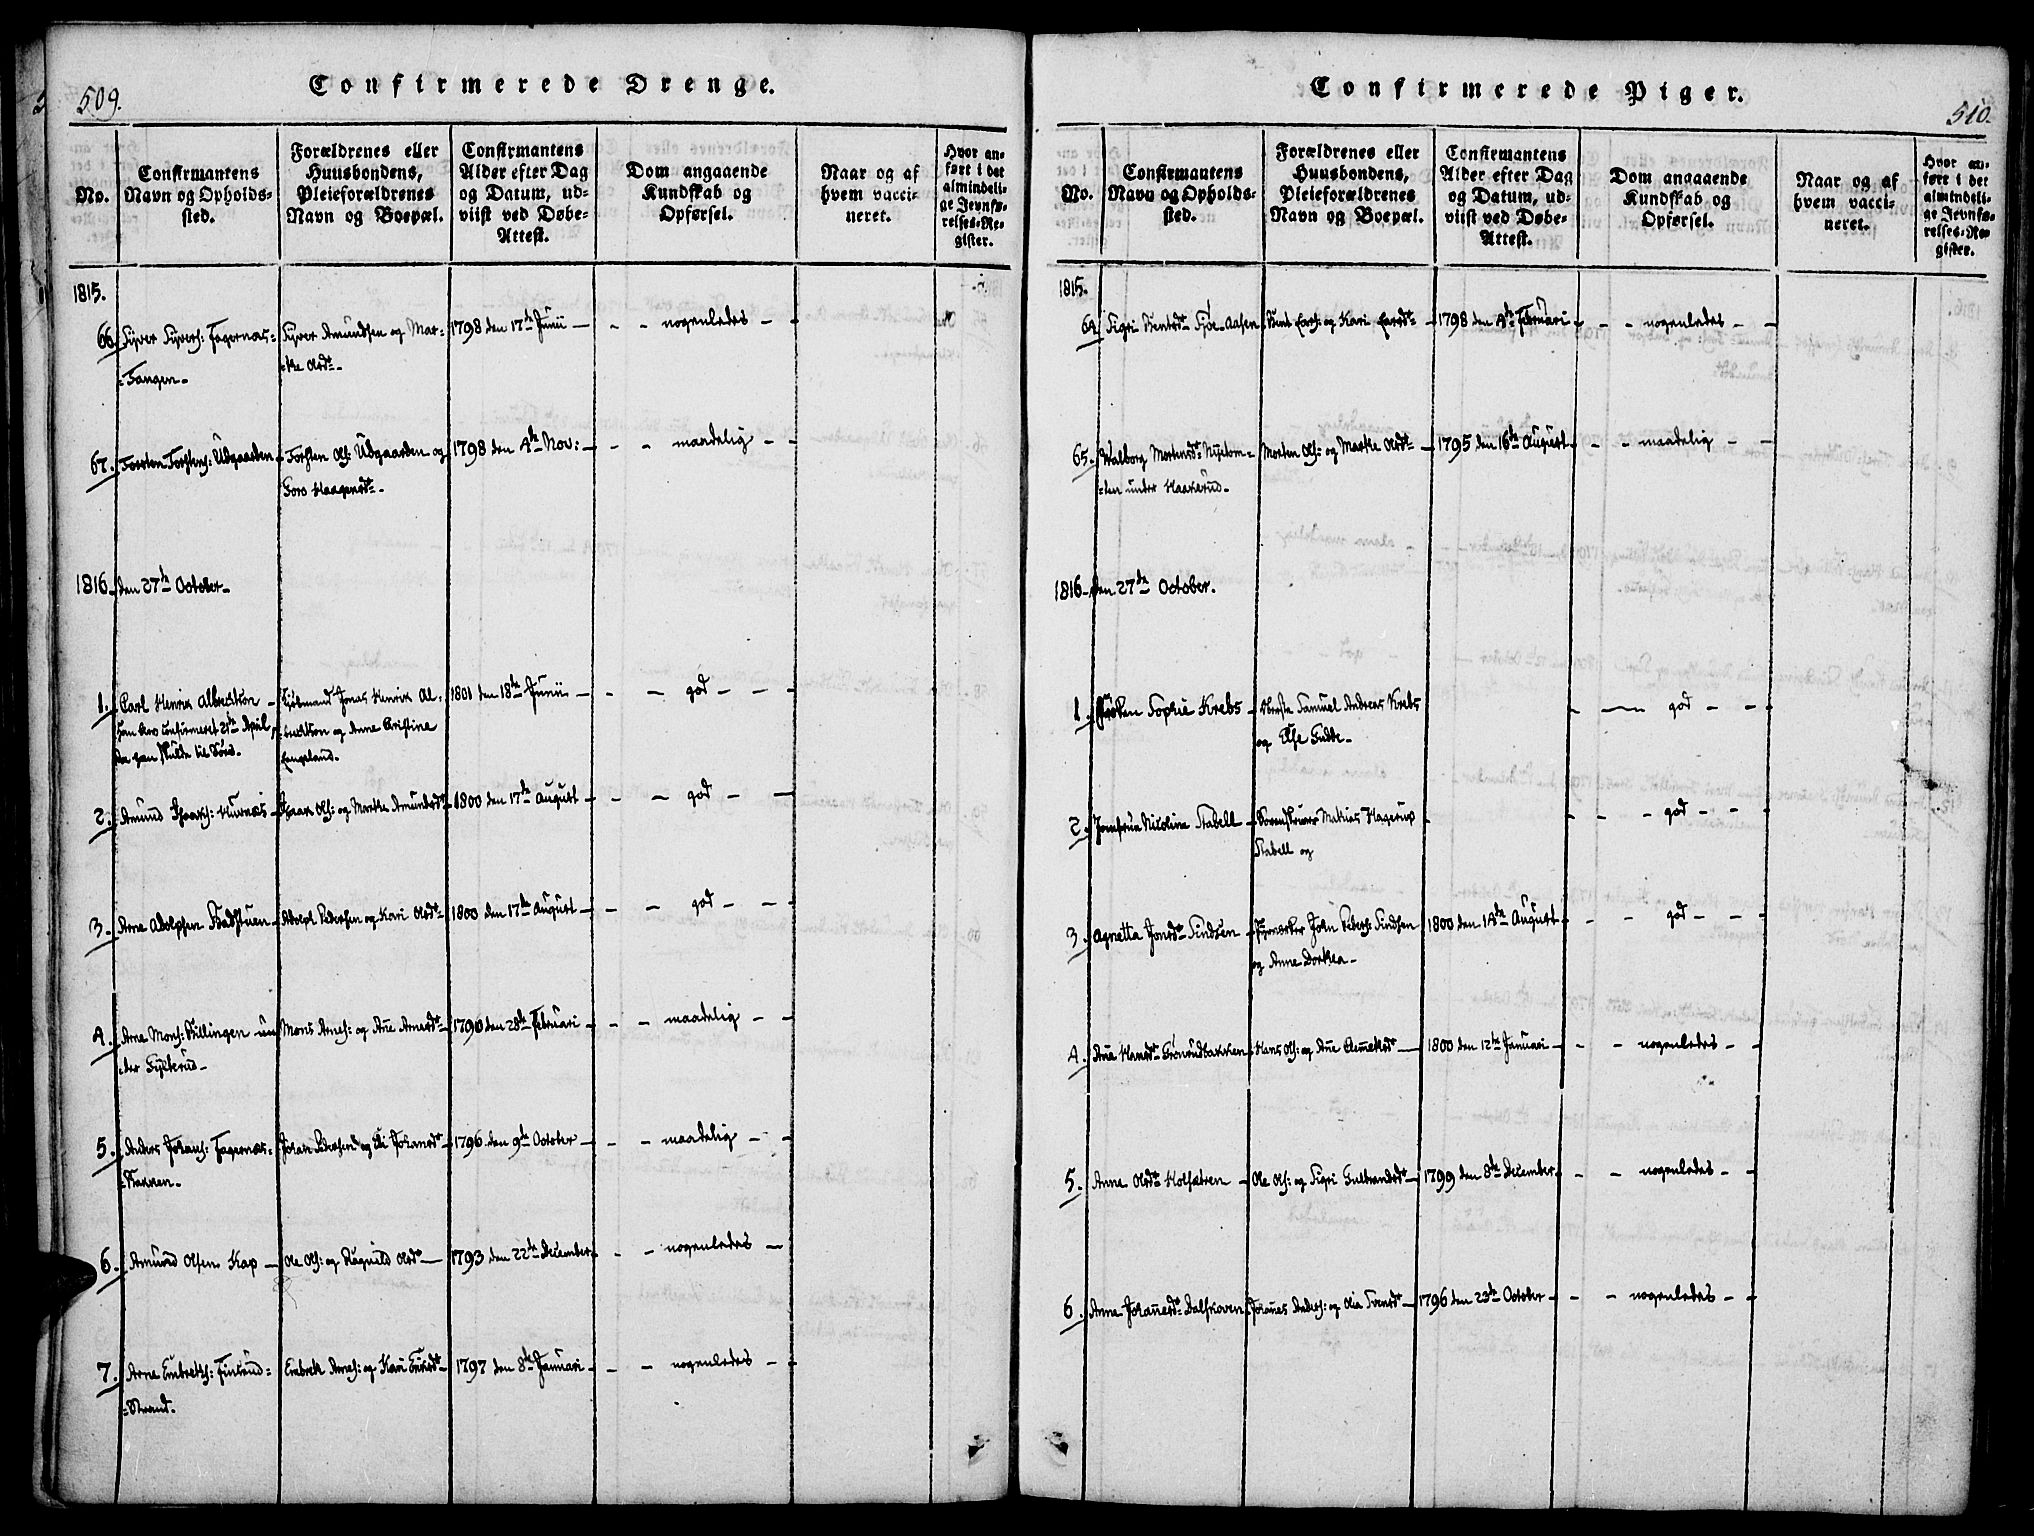 509.
Confirmerede Drenge.
No.
Confirmantens
Navn og Opholds-
sted.
Forældrenes eller
Huusbondens,
Pleieforældrenes
Navn og Boepæl.
Confirmantens
Alder efter Dag
og Datum, ud-
viist ved Døbe-
Attest.
Dom angaaende
Kundskab og
Opførsel.
Naar og af
hvem vacci-
neret.
Hvor an-
ført i det
almindeli-
ge Jevnfø-
relses-Re-
gister.
1815.
66. Syver Syvers: Fagernæs=
=Tangen.
Syver Amundsen og Mar-
=the Olsdt.
1798 den 17de Junii
nogenledes
67. Torsten Torstens: Udgaarden
Torsten Ols: Udgaarden og
Goro Haagensdt.
1798 den 4de Nov:
maadelig
1816. den 27de October.
1. Carl Henrik Albrektson
confirmeret 21de April,
da han skulde til
Jonas Henrik Al-
=brektson og Anne Cristine
1801 den 18de Junii
god
2. Amund Isaaks:
Isaak Ols: og Marthe Amundsdt
1800 den 17de August
god
3. Arne Adolphsen Badstuen
Adolph Pedersen og Kari Olsdt
1800 den 17de August
god
4. Arne Mons: Killingen un
=der Gylterud.
Mons Arnes: og Ane Arnesdt
1790 den 28de Februari
maadelig
5. Anders Johans: Fagernæs=
=Bakken.
Johan Pedersen og Eli Johansdt
1796 den 9de October
maadelig
6. Amund Olsen Kap
Ole Ols: og Ragnild Olsdt
1793 den 22de December
nogenledes
7. Arne Embrekts:
=Strand.
Embrek Arnes: og Kari
1797 den 8de Januari
nogenledes
Confirmerede Piger.
510.
No.
Confirmantens
Navn og Opholds-
sted.
Forældrenes eller
Huusbondens,
Pleieforældrenes
Navn og Boepæl.
Confirmantens
Alder efter Dag
og Datum, ud-
viist ved Døbe-
Attest.
Dom angaaende
Kundskab og
Opførsel.
Naar og af
hvem vacci-
neret.
Hvor an-
ført i det
almindeli-
ge Jevnfø-
relses-Re-
gister.
1815.
64. Sigri Bentsdt
Bent Lars: og Kari Larsdt
1798 den 4de Februari
nogenledes
65. Walborg Mortensdt
=ten under Haakerud.
Morten Ols: og Marthe Olsdt
1795 den 16de August
maadelig
1816. den 27de October.
1. Frøken Sophie Krebs
Oberste Samuel Andreas Krebs
og Else
god
2. Jomfrue Nicoline Stabell
Sorenskriver Matias Hagerup
Stabell og
god
3. Agnetta Jonsdt Lindsen
John Peders: Lindsen
og Anne Dorthea
1800 den 14de August
god
4. Ane Hansdt
Hans Ols: og Ane
1800 den 12te Januari
nogenledes
5. Anne Olsdt Holsætren
Ole Ols: og Sigri Gulbrandsdt
1799 den 8de December
nogenledes
6. Anne Johanesdt Dalskoven
Johanes Anders: og Olia Svensdt
1796 den 23de October
nogenledes